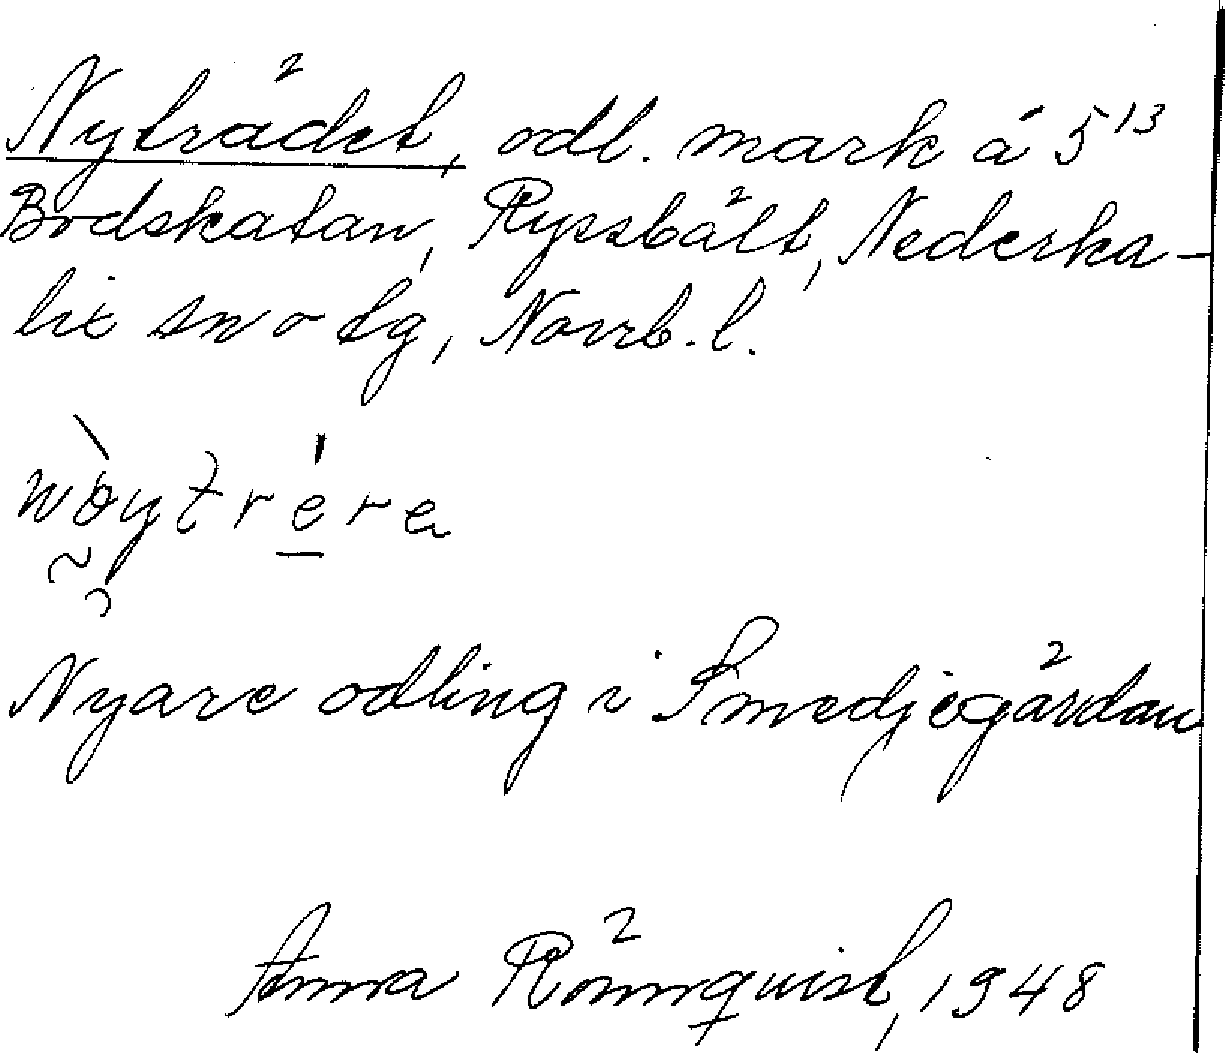 Nyträdet, odl. mark å 5¹³
Bodskatan, Ryssbält, Nederka-
lix sn o tg, Norrb. l.
nòytrére
Nyare odling i Smedjegärdan
Anna Rönnquist, 1948